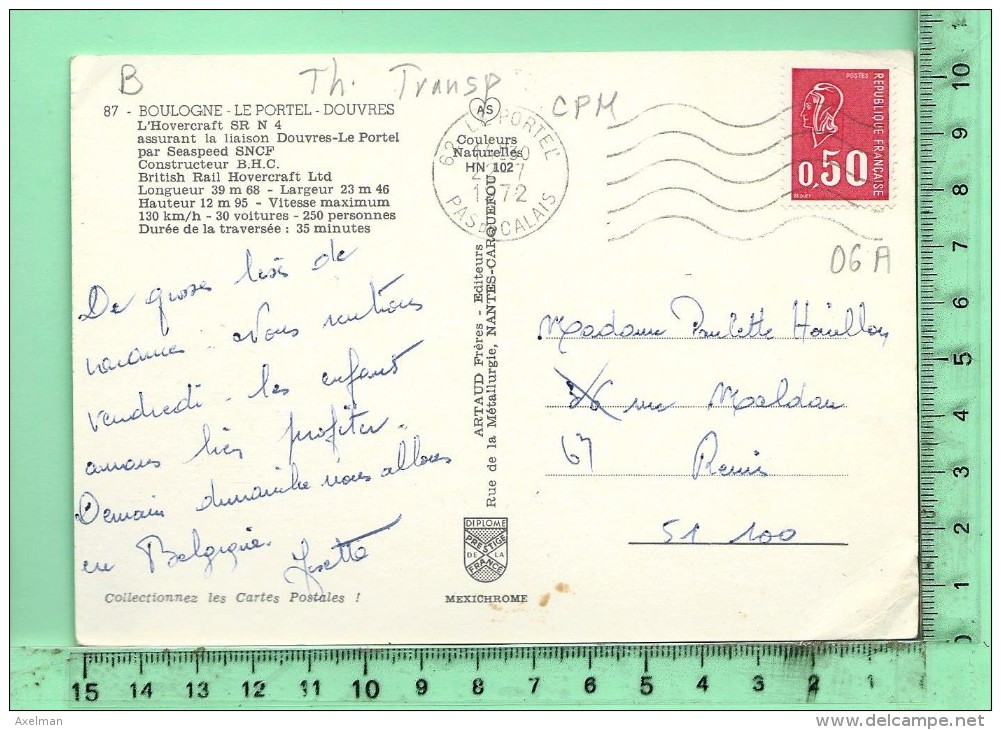 B
Th. Transp
CPM
87 - BOULOGNE - LE PORTEL - DOUVRES
L'Hovercraft SR N 4
assurant la liaison Douvres-Le Portel
par Seaspeed SNCF
Constructeur B.H.C.
British Rail Hovercraft Ltd
Longueur 39 m 68 - Largeur 23 m 46
Hauteur 12 m 95 - Vitesse maximum
130 km/h - 30 voitures - 250 personnes
Durée de la traversée : 35 minutes
De gross bisés de
vacances. Nous rentrons
vendredi. les enfants
auront bien profiter.
Demain dimanche nous allons
en Belgique. Josette
Collectionnez les Cartes Postales !
AS
Couleurs
Naturelles
HN 102
62 LE PORTEL
1972
PAS DE CALAIS
ARTAUD Frères - Editeurs
Rue de la Métallurgie, NANTES-CARQUEFOU
DIPLOME
PRESTIGE
DE LA
FRANCE
MEXICHROME
POSTES
REPUBLIQUE FRANÇAISE
0,50
06 A
Madame Paulette
rue Maldan
67 Reims
51 100
10
9
8
7
6
5
4
3
2
1
0
15 14 13 12 11 10 9 8 7 6 5 4 3 2 1
Axelman
delcampe.net